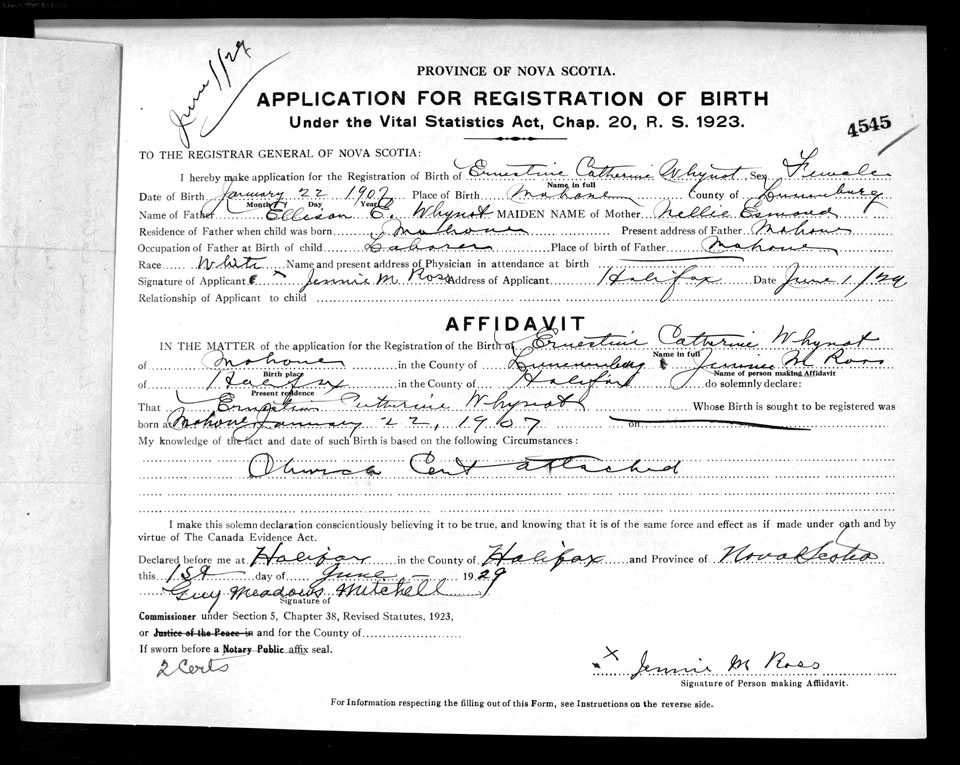 June 1/29
PROVINCE OF NOVA SCOTIA.
APPLICATION FOR REGISTRATION OF BIRTH
Under the Vital Statistics Act, Chap. 20, R. S. 1923.
4545
TO THE REGISTRAR GENERAL OF NOVA SCOTIA:
I hereby make application for the Registration of Birth of Ernestine Catherine Whynot Sex Female
Name in full
Date of Birth January 22 1907 Place of Birth Mahone County of Lunenburg
Month Day Year
Name of Father Ellison E. Whynot MAIDEN NAME of Mother Nellie Esmond
Residence of Father when child was born Mahone Present address of Father Mahone
Occupation of Father at Birth of child Laborer Place of birth of Father Mahone
Race White Name and present address of Physician in attendance at birth
Signature of Applicant x Jennie M Ross Address of Applicant Halifax Date June 1/29
Relationship of Applicant to child
AFFIDAVIT
IN THE MATTER of the application for the Registration of the Birth of Ernestine Catherine Whynot
Name in full
of Mahone in the County of Lunenburg Jennie M Ross
Birth place Name of person making Affidavit
of Halifax in the County of Halifax do solemnly declare:
Present residence
That Ernestine Catherine Whynot Whose Birth is sought to be registered was
born at Mahone January 22, 1907 on
My knowledge of the fact and date of such Birth is based on the following Circumstances :
Church Cert attached
I make this solemn declaration conscientiously believing it to be true, and knowing that it is of the same force and effect as if made under oath and by
virtue of The Canada Evidence Act.
Declared before me at Halifax in the County of Halifax and Province of Nova Scotia
this 1st day of June 1929
Guy Meadows Mitchell
Signature of
Commissioner under Section 5, Chapter 38, Revised Statutes, 1923,
or Justice of the Peace in and for the County of
If sworn before a Notary Public affix seal.
2 Certs
x Jennie M Ross
Signature of Person making Affidavit.
For Information respecting the filling out of this Form, see Instructions on the reverse side.